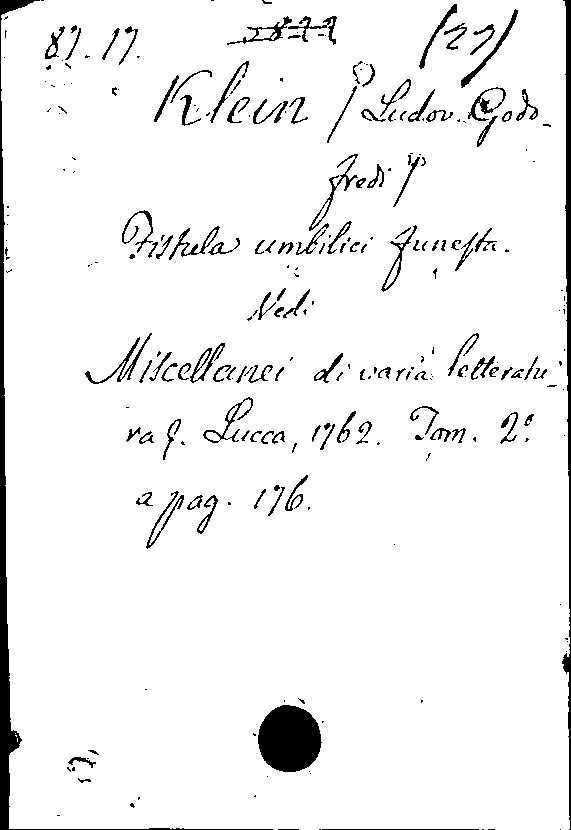 87.17. (27)
Klein (Ludov. Godo-
fredi)
Fistula umbilici funesta.
Vedi
Miscellanei di varia letteratu-
ra &. Lucca, 1762. Tom. 2º
a pag. 176.